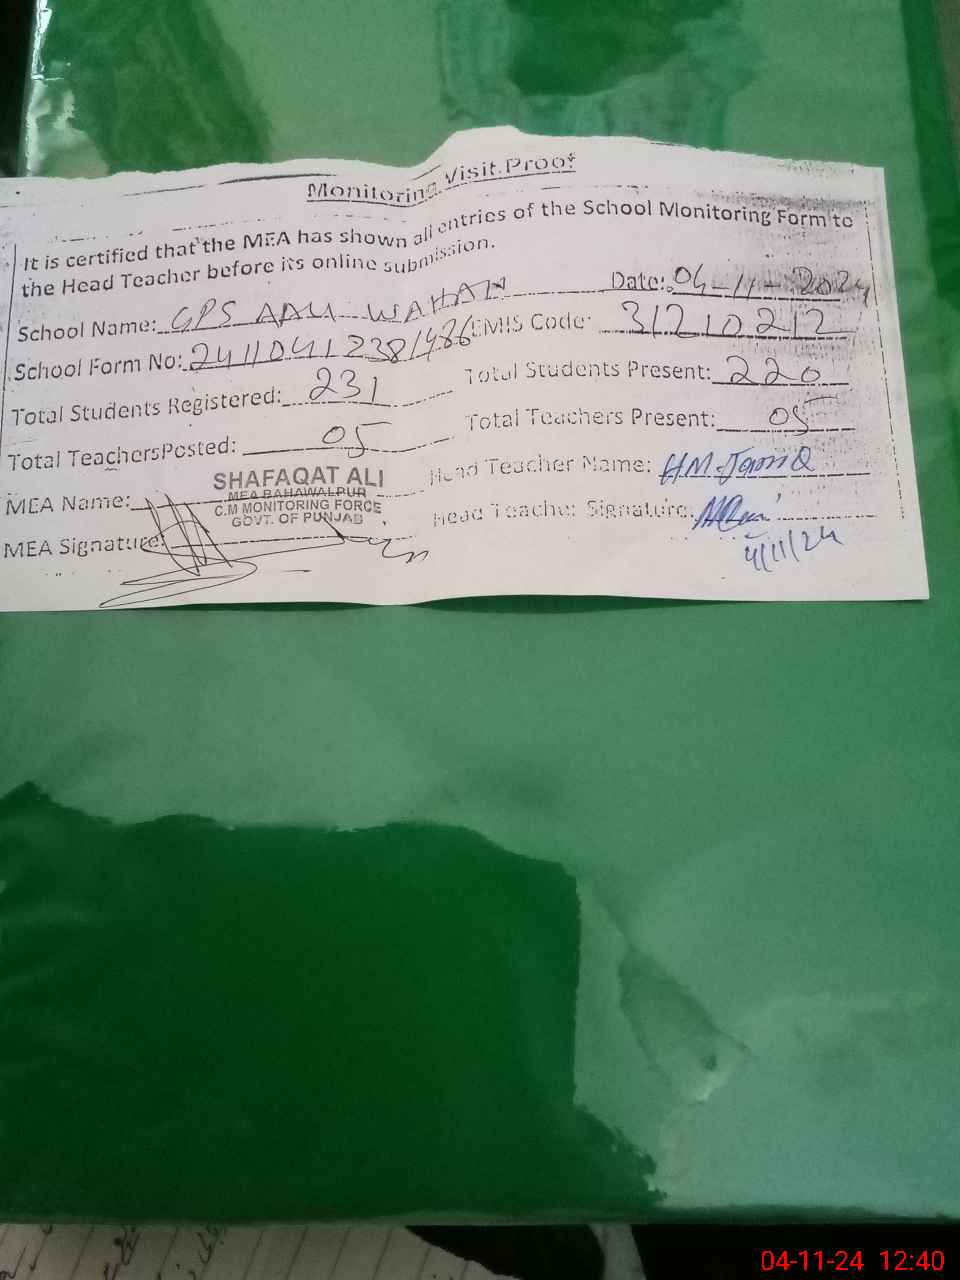 Monitoring Visit Proof
It is certified that the MEA has shown all entries of the School Monitoring Form to
the Head Teacher before its online submission.
Date: 04-11-2024
School Name: GPS AALI WAHAN
EMIS Code: 31210212
School Form No: 2411041238/486
Total Students Registered: 231
Total Students Present: 220
Total TeachersPosted: 05
Total Teachers Present: 05
MEA Name:
SHAFAQAT ALI
MEA BAHAWALPUR
C.M MONITORING FORCE
GOVT. OF PUNJAB
Head Teacher Name: H M
MEA Signature:
Head Teacher Signature:
4/11/24
04-11-24 12:40